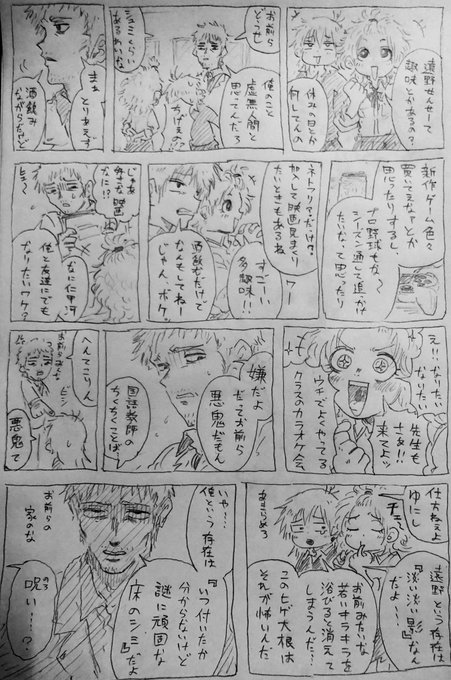 遠野せんせーて
趣味とかあるの?
休みの日とか
何してんの
お前ら
どうせ
俺のこと
虚無人間と
思ってんだろ
シュミくらい
あるわいな
ちげえの?
まぁ
とりあえず
酒飲み
ながらだけど
新作ゲーム色々
買いてえな?とか
思ったりするし、
プロ野球もな〜
シーズン通して追っかけ
たいな、て思ったり
ネトフリでだけ?
加入して映画見まくり
たいときもあるね
ワー
すごーい
多趣味!!
酒飲むだけで
なんもしてねー
じゃん、ボケ。
じゃあ
好きな映画
なに!?
なに仁甲河
俺と友達にでも
なりたいワケ?
え!!なりたい
なりたい
先生も
さぁ!!
来てよッ
ウチでよくやってる
クラスのカラオケ会、
嫌だよ
だってお前ら
悪鬼だもん
国語教師の
ちくちくことば
へんてこりん
お前らみんな
悪鬼て
仕方ねえよ
ゆにし
チュ、
遠野という存在は
『淡い淡い影』なん
だよ…
お前みたいな
若いキラキラを
浴びると消えて
しまうんだ…
このヒゲ大根は
それが怖いんだ
あきらめろ
いや…
俺という存在は
『いつ付いたか
分からないけど
謎に頑固な
床のシミ』だよ
お前らの
家のな
呪い…?